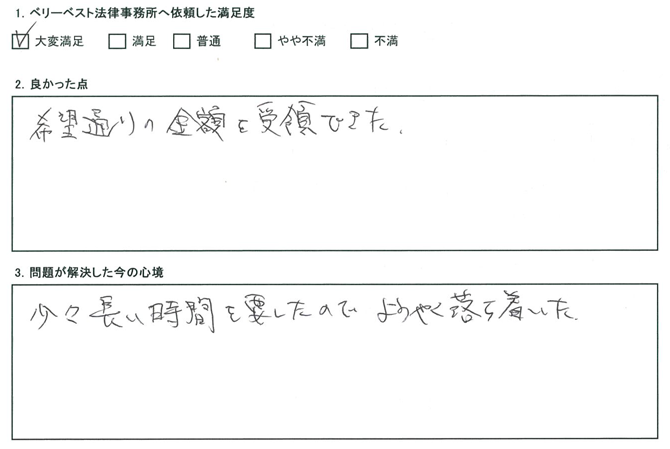 1. ベリーベスト法律事務所へ依頼した満足度
☑ 大変満足 □ 満足 □ 普通 □ やや不満 □ 不満
2. 良かった点
希望通りの金額を受領できた.
3. 問題が解決した今の心境
少々長い時間を要したのでようやく落ち着いた.